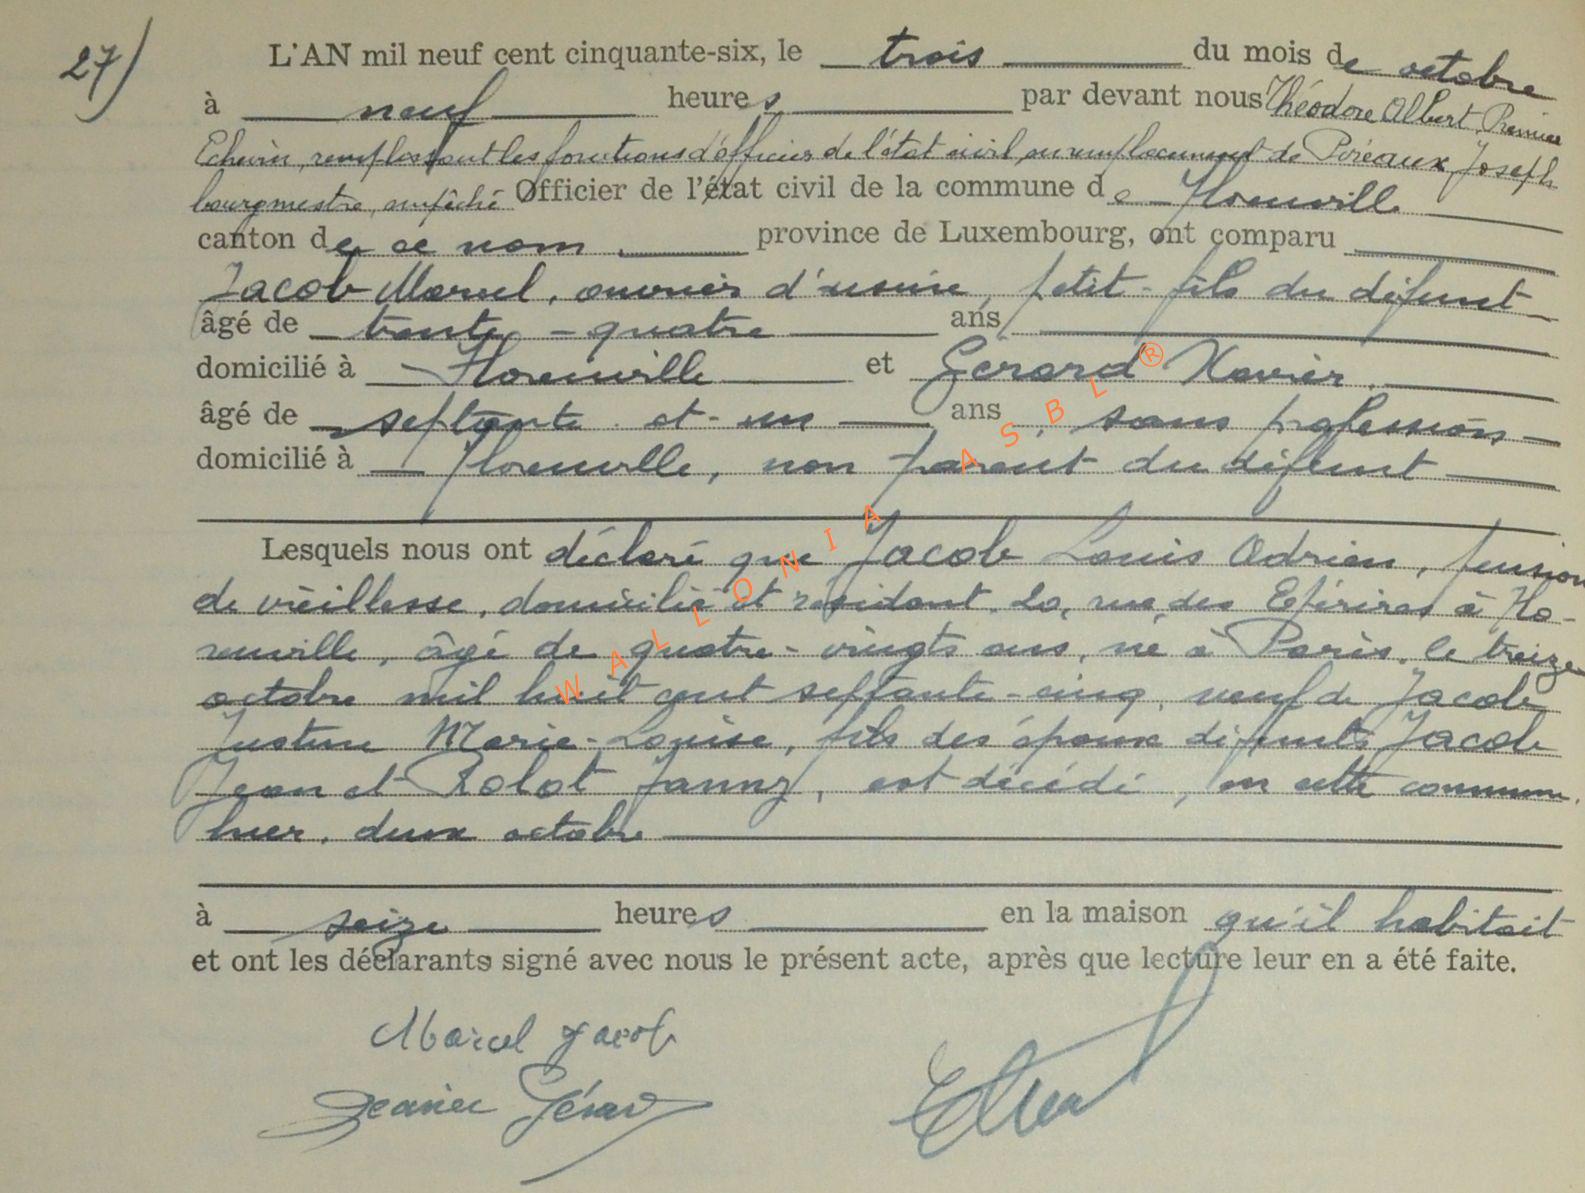 27)
L'AN mil neuf cent cinquante-six, le trois du mois de octobre
à neuf heures par devant nous Théodore Albert, Premier
Echevin, remplissant les fonctions d'officier de l'état civil, en remplacement de Poreaux Joseph
bourgmestre, empêché Officier de l'état civil de la commune de Florenville
canton de ce nom, province de Luxembourg, ont comparu
Jacob Marcel, ouvrier d'usine, petit-fils du défunt
âgé de trente-quatre ans
domicilié à Florenville et Gérard Xavier,
âgé de septante et un ans, sans profession
domicilié à Florenville, non parent du défunt
Lesquels nous ont déclaré que Jacob Louis Adrien, pension
de vieillesse, domicilié et résidant 20, rue des à Flo-
renville, âgé de quatre-vingts ans, né à Paris, le treize
octobre mil huit cent septante-cinq, veuf de Jacob
Justine Marie-Louise, fils des époux défunts Jacob
Jean et Rolot Fanny, est décédé, en cette commune,
hier, deux octobre
à seize heures en la maison qu'il habitait
et ont les déclarants signé avec nous le présent acte, après que lecture leur en a été faite.
Marcel Jacob
Xavier Gérard
WALLONIA ASBL ®